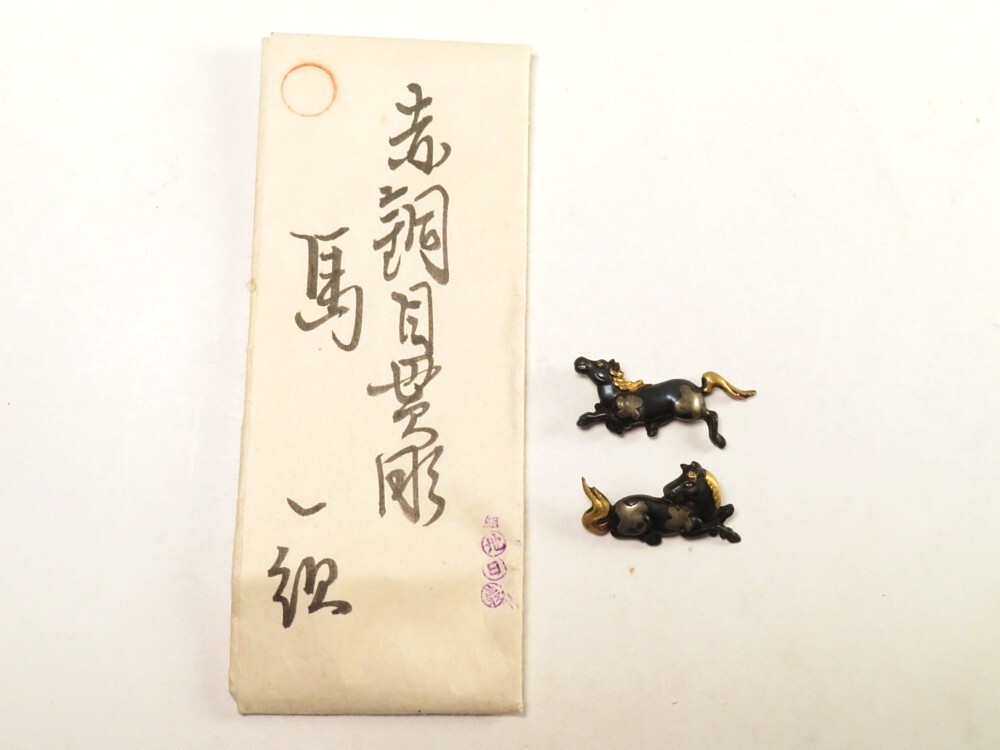 赤銅目貫彫
馬
一組